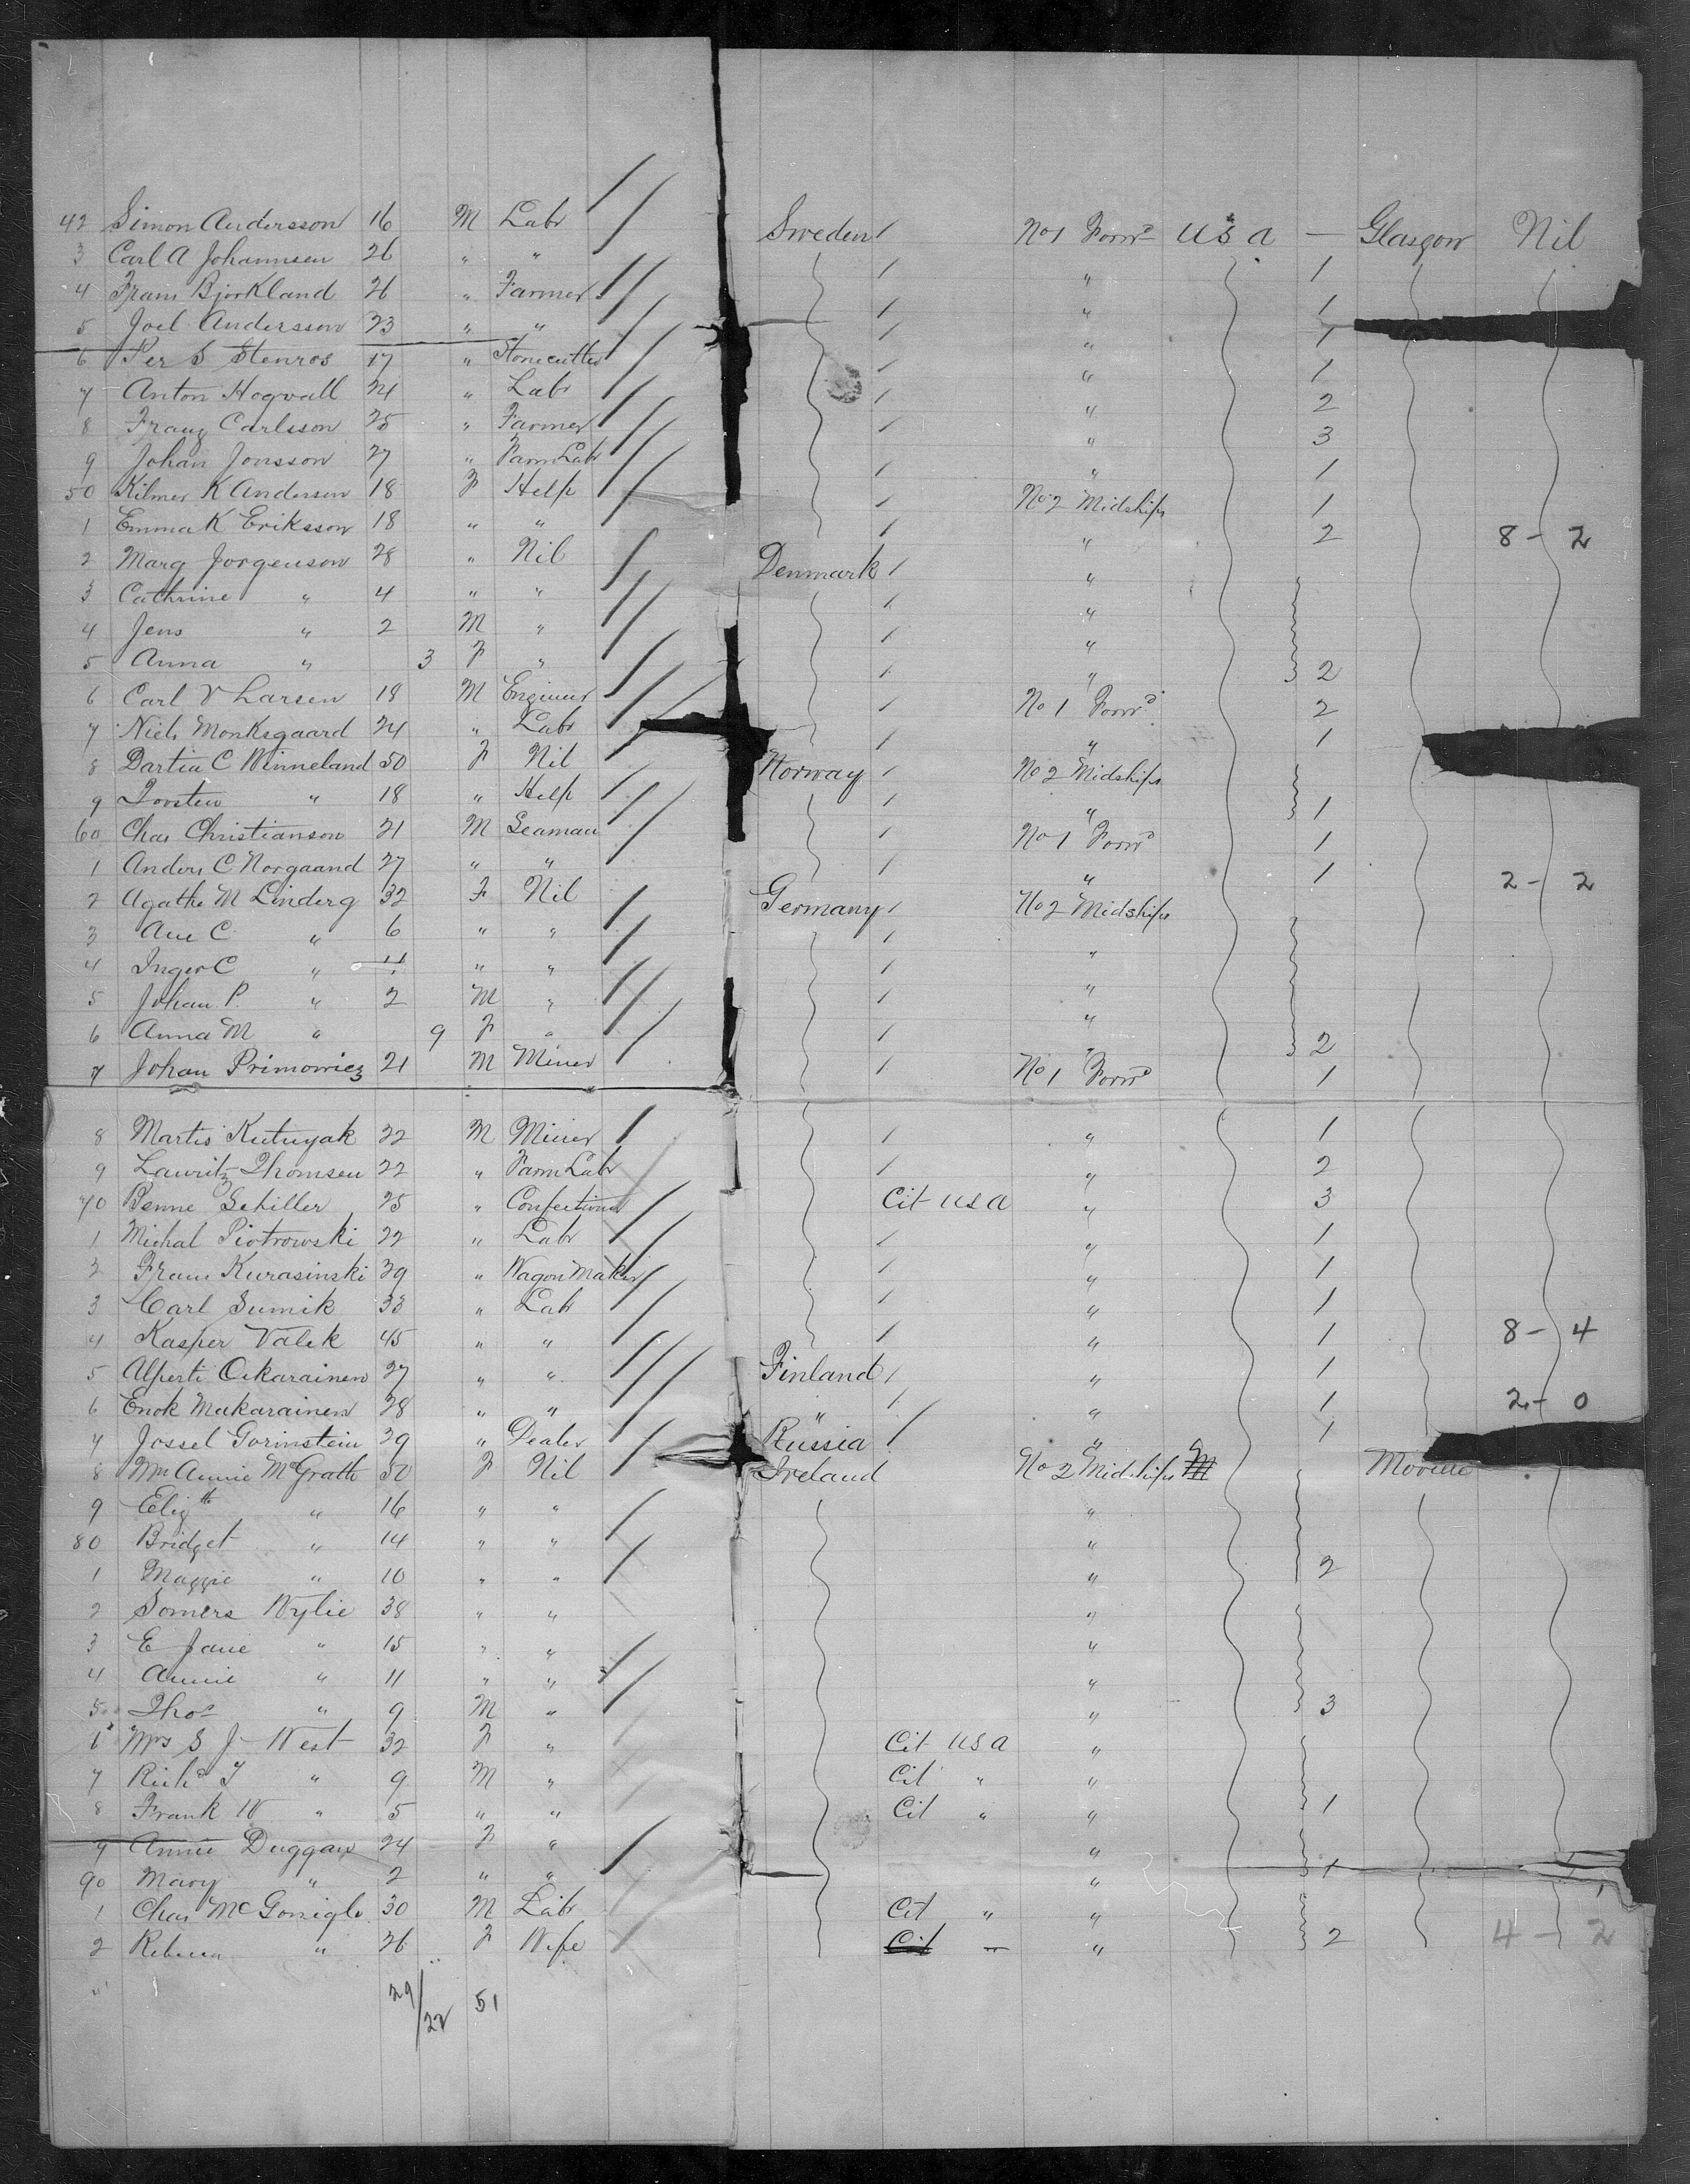 42 Simon Andersson 16 M Labr Sweden / No 1 Forwd U S A — Glasgow Nil
3 Carl A Johannsen 26 " " / " 1
4 Frans Bjorkland 26 " Farmer / " 1
5 Joel Andersson 23 " " / " 1
6 Per S Stenros 17 " Stonecutter / " 1
7 Anton Hogvall 24 " Labr / " 2
8 Franz Carlsson 25 " Farmer / " 3
9 Johan Jonsson 27 " Farm Labr / " 1
50 Kilmer K Andersen 18 F Help / No 2 Midships 1
1 Emma K Eriksson 18 " " / " 2 8 - 2
2 Marg Jorgenson 28 " Nil Denmark / "
3 Cathrine " 4 " " / "
4 Jens " 2 M " / "
5 Anna " 3 F " / " 2
6 Carl V Larsen 18 M Engineer / No 1 Forwd 2
7 Niels Monksgaard 24 " Labr / " 1
8 Dartia C Winneland 50 F Nil Norway / No 2 Midships
9 Torsten " 18 " Help / " 1
60 Chas Christianson 21 M Seaman / No 1 Forwd 1
1 Anders C Norgaand 27 " " / " 1 2 - 2
2 Agathe M Linderg 32 F Nil Germany / No 2 Midships
3 Ane C " 6 " " / "
4 Inger C " 4 " " / "
5 Johan P. " 2 M " / "
6 Anna M " 9 F " / " 2
7 Johan Primowicz 21 M Miner / No 1 Forwd 1
8 Martis Kutuyak 22 M Miner / " 1
9 Lauritz Thomsen 22 " Farm Labr / " 2
70 Benne Schiller 25 " Confectioner Cit U S A " 3
1 Michal Piotrowski 22 " Labr / " 1
2 Frans Kurasinski 39 " Wagon Maker / " 1
3 Carl Sumik 33 " Labr / " 1
4 Kasper Valek 45 " " / " 1 8 - 4
5 Alperti Oikarainen 27 " " Finland / " 1
6 Enok Mukarainen 28 " " " / " 1 2 - 0
7 Jossel Gorinstein 39 " Dealer Russia / " 1
8 Mrs Annie McGrath 50 F Nil Ireland No 2 Midships Moville
9 Elizth " 16 " " "
80 Bridget " 14 " " "
1 Maggie " 10 " " " 2
2 Somers Wylie 38 " " "
3 E Jane " 15 " " "
4 Annie " 11 " " "
5 Thos " 9 M " " 3
6 Mrs S J West 32 F " Cit U S A "
7 Richd J " 9 M " Cit " "
8 Frank W " 5 " " Cit " " 1
9 Annie Duggan 24 F " "
90 Mary " 2 " " " 1
1 Chas McGonigle 30 M Labr Cit " "
2 Rebecca " 26 F Wife Cit " " 2 4 - 2
29/22 51